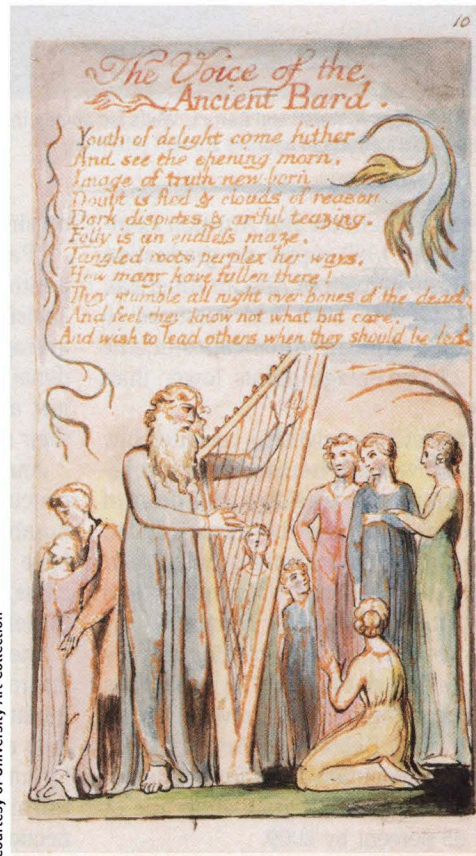 10
The Voice of the
Ancient Bard.
Youth of delight come hither
And see the opening morn,
Image of truth new born
Doubt is fled & clouds of reason
Dark disputes & artful teazing.
Folly is an endless maze.
Tangled roots perplex her ways.
How many have fallen there!
They stumble all night over bones of the dead;
And feel they know not what but care;
And wish to lead others when they should be led.
Courtesy of University Art Collection